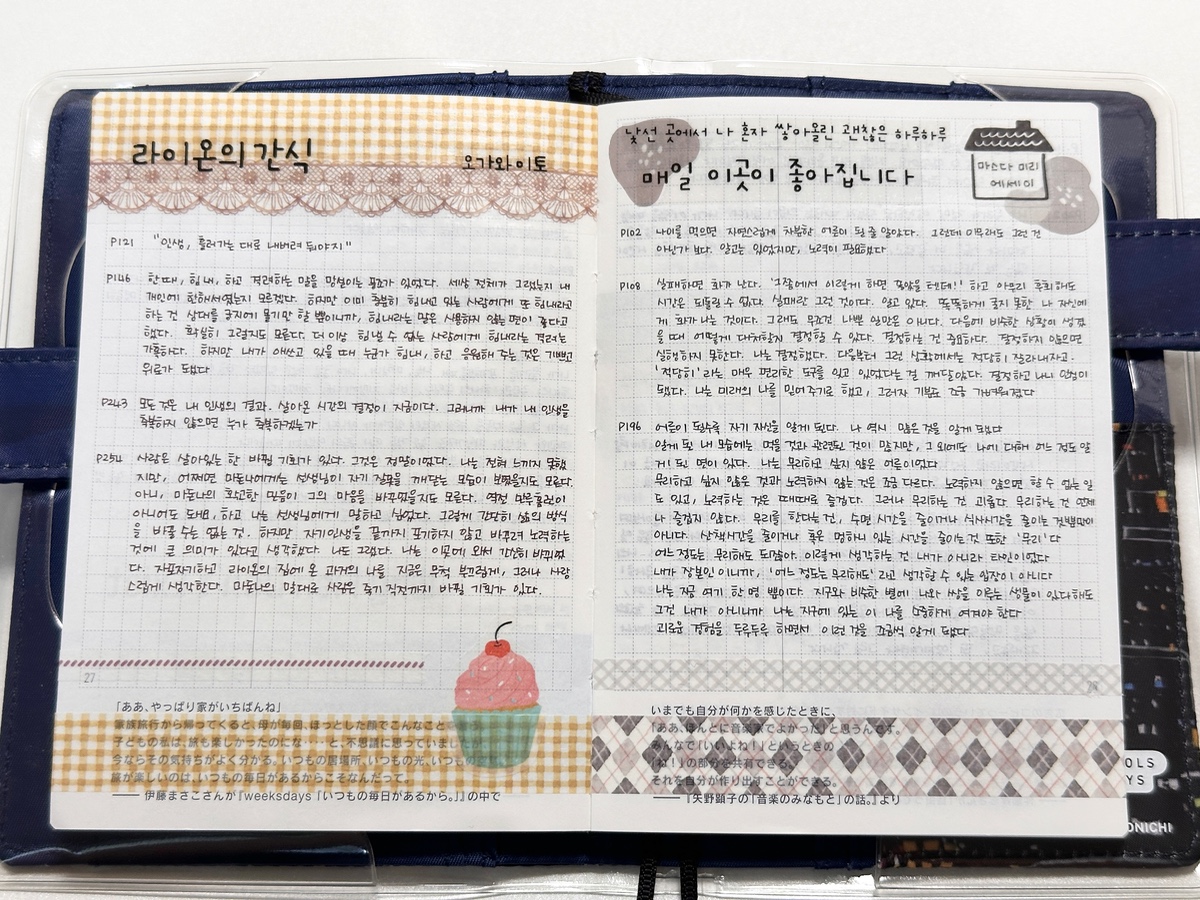 라이온의 간식
오가와 이토
P121 "인생, 흘러가는 대로 내버려 둬야지"
P146 한때, 힘내, 하고 격려하는 말을 망설이는 풍조가 있었다. 세상 전체가 그랬는지 내
개인에 한해서였는지 모르겠다. 하지만 이미 충분히 힘내고 있는 사람에게 또 힘내라고
하는 건 상대를 궁지에 몰기만 할 뿐이니까, 힘내라는 말은 사용하지 않는 편이 좋다고
했다. 확실히 그럴지도 모른다. 더 이상 힘낼 수 없는 사람에게 힘내라는 격려는
가혹하다. 하지만 내가 애쓰고 있을 때 누군가 힘내, 하고 응원해 주는 것은 기쁘고
위로가 됐다
P243 모든 것은 내 인생의 결과. 살아온 시간의 결정이 지금이다. 그러니까 내가 내 인생을
축복하지 않으면 누가 축복하겠는가
P254 사람은 살아있는 한 바뀔 기회가 있다. 그것은 정말이었다. 나는 전혀 느끼지 못했
지만, 어쩌면 마돈나에게는 선생님이 자기 잘못을 깨닫는 모습이 보였을지도 모른다.
아니, 마돈나의 확고한 믿음이 그의 마음을 바꾸었을지도 모른다. 역전 만루홈런이
아니어도 돼요, 하고 나는 선생님에게 말하고 싶었다. 그렇게 간단히 삶의 방식
을 바꿀 수는 없는 것. 하지만 자기인생을 끝까지 포기하지 않고 바꾸려 노력하는
것에 큰 의미가 있다고 생각했다. 나도 그랬다. 나는 이곳에 와서 간신히 바뀌었
다. 자포자기하고 라이온의 집에 온 과거의 나를 지금은 무척 부끄럽게, 그러나 사랑
스럽게 생각한다. 마돈나의 말대로 사람은 죽기 직전까지 바뀔 기회가 있다.
27
「ああ、やっぱり家がいちばんね」
家族旅行から帰ってくると、母が毎回、ほっとした顔でこんなこと
子どもの私は、旅も楽しかったのにな・・・と、不思議に思っていましたが、
今ならその気持ちがよく分かる。いつもの居場所、いつもの光、いつもの
旅が楽しいのは、いつもの毎日があるからこそなんだって。
── 伊藤まさこさんが『weeksdays「いつもの毎日があるから。」』の中で
낯선 곳에서 나 혼자 쌓아올린 괜찮은 하루하루
매일 이곳이 좋아집니다
마스다 미리
에세이
P102 나이를 먹으면 자연스럽게 차분한 어른이 될 줄 알았다. 그런데 아무래도 그런 건
아닌가 보다. 알고는 있었지만, 노력이 필요했다
P108 실패하면 화가 난다. '그쪽에서 이렇게 하면 좋았을 텐데!' 하고 아무리 후회해도
시간은 되돌릴 수 없다. 실패란 그런 것이다. 알고 있다. 똑똑하게 굴지 못한 나 자신에
게 화가 나는 것이다. 그래도 무조건 나쁜 일만은 아니다. 다음에 비슷한 상황이 생겼
을 때 어떻게 대처할지 결정할 수 있다. 결정하는 건 중요하다. 결정하지 않으면
실행하지 못한다. 나는 결정했다. 다음부터 그런 상황에서는 적당히 잘라내자고.
'적당히'라는 매우 편리한 도구를 잊고 있었다는 걸 깨달았다. 결정하고 나니 안심이
됐다. 나는 미래의 나를 믿어주기로 했고, 그러자 기분도 조금 가벼워졌다
P196 어른이 될수록 자기 자신을 알게 된다. 나 역시 많은 것을 알게 됐다
알게 된 내 모습에는 먹을 것과 관련된 것이 많지만, 그 외에도 나에 대해 어느 정도 알
게 된 면이 있다. 나는 무리하고 싶지 않은 어른이었다
무리하고 싶지 않은 것과 노력하지 않는 것은 조금 다르다. 노력하지 않으면 할 수 없는 일
도 있고, 노력하는 것은 때때로 즐겁다. 그러나 무리하는 건 괴롭다 무리하는 건 언제
나 즐겁지 않다. 무리를 한다는 건, 수면 시간을 줄이거나 식사시간을 줄이는 것뿐만이
아니다. 산책시간을 줄이거나 혹은 멍하니 있는 시간을 줄이는 것 또한 '무리'다
어느 정도는 무리해도 되잖아. 이렇게 생각하는 건 내가 아니라 타인이었다
내가 장본인이니까, '어느 정도는 무리해도'라고 생각할 수 있는 입장이 아니다
나는 지금 여기 한 명 뿐이다. 지구와 비슷한 별에 나와 쌍을 이루는 생물이 있다해도
그건 내가 아니니까 나는 지구에 있는 이 나를 소중하게 여겨야 한다
괴로운 경험을 두루두루 하면서 이런 것을 조금씩 알게 됐다.
28
いまでも自分が何かを感じたときに、
「ああ、ほんとに音楽家でよかった」と思うんです。
みんなで「いいよね！」というときの
「ね！」の部分を共有できる。
それを自分が作り出すことができる。
──『矢野顕子の「音楽のみなもと」の話。』より
OLS
YS
ONICHI